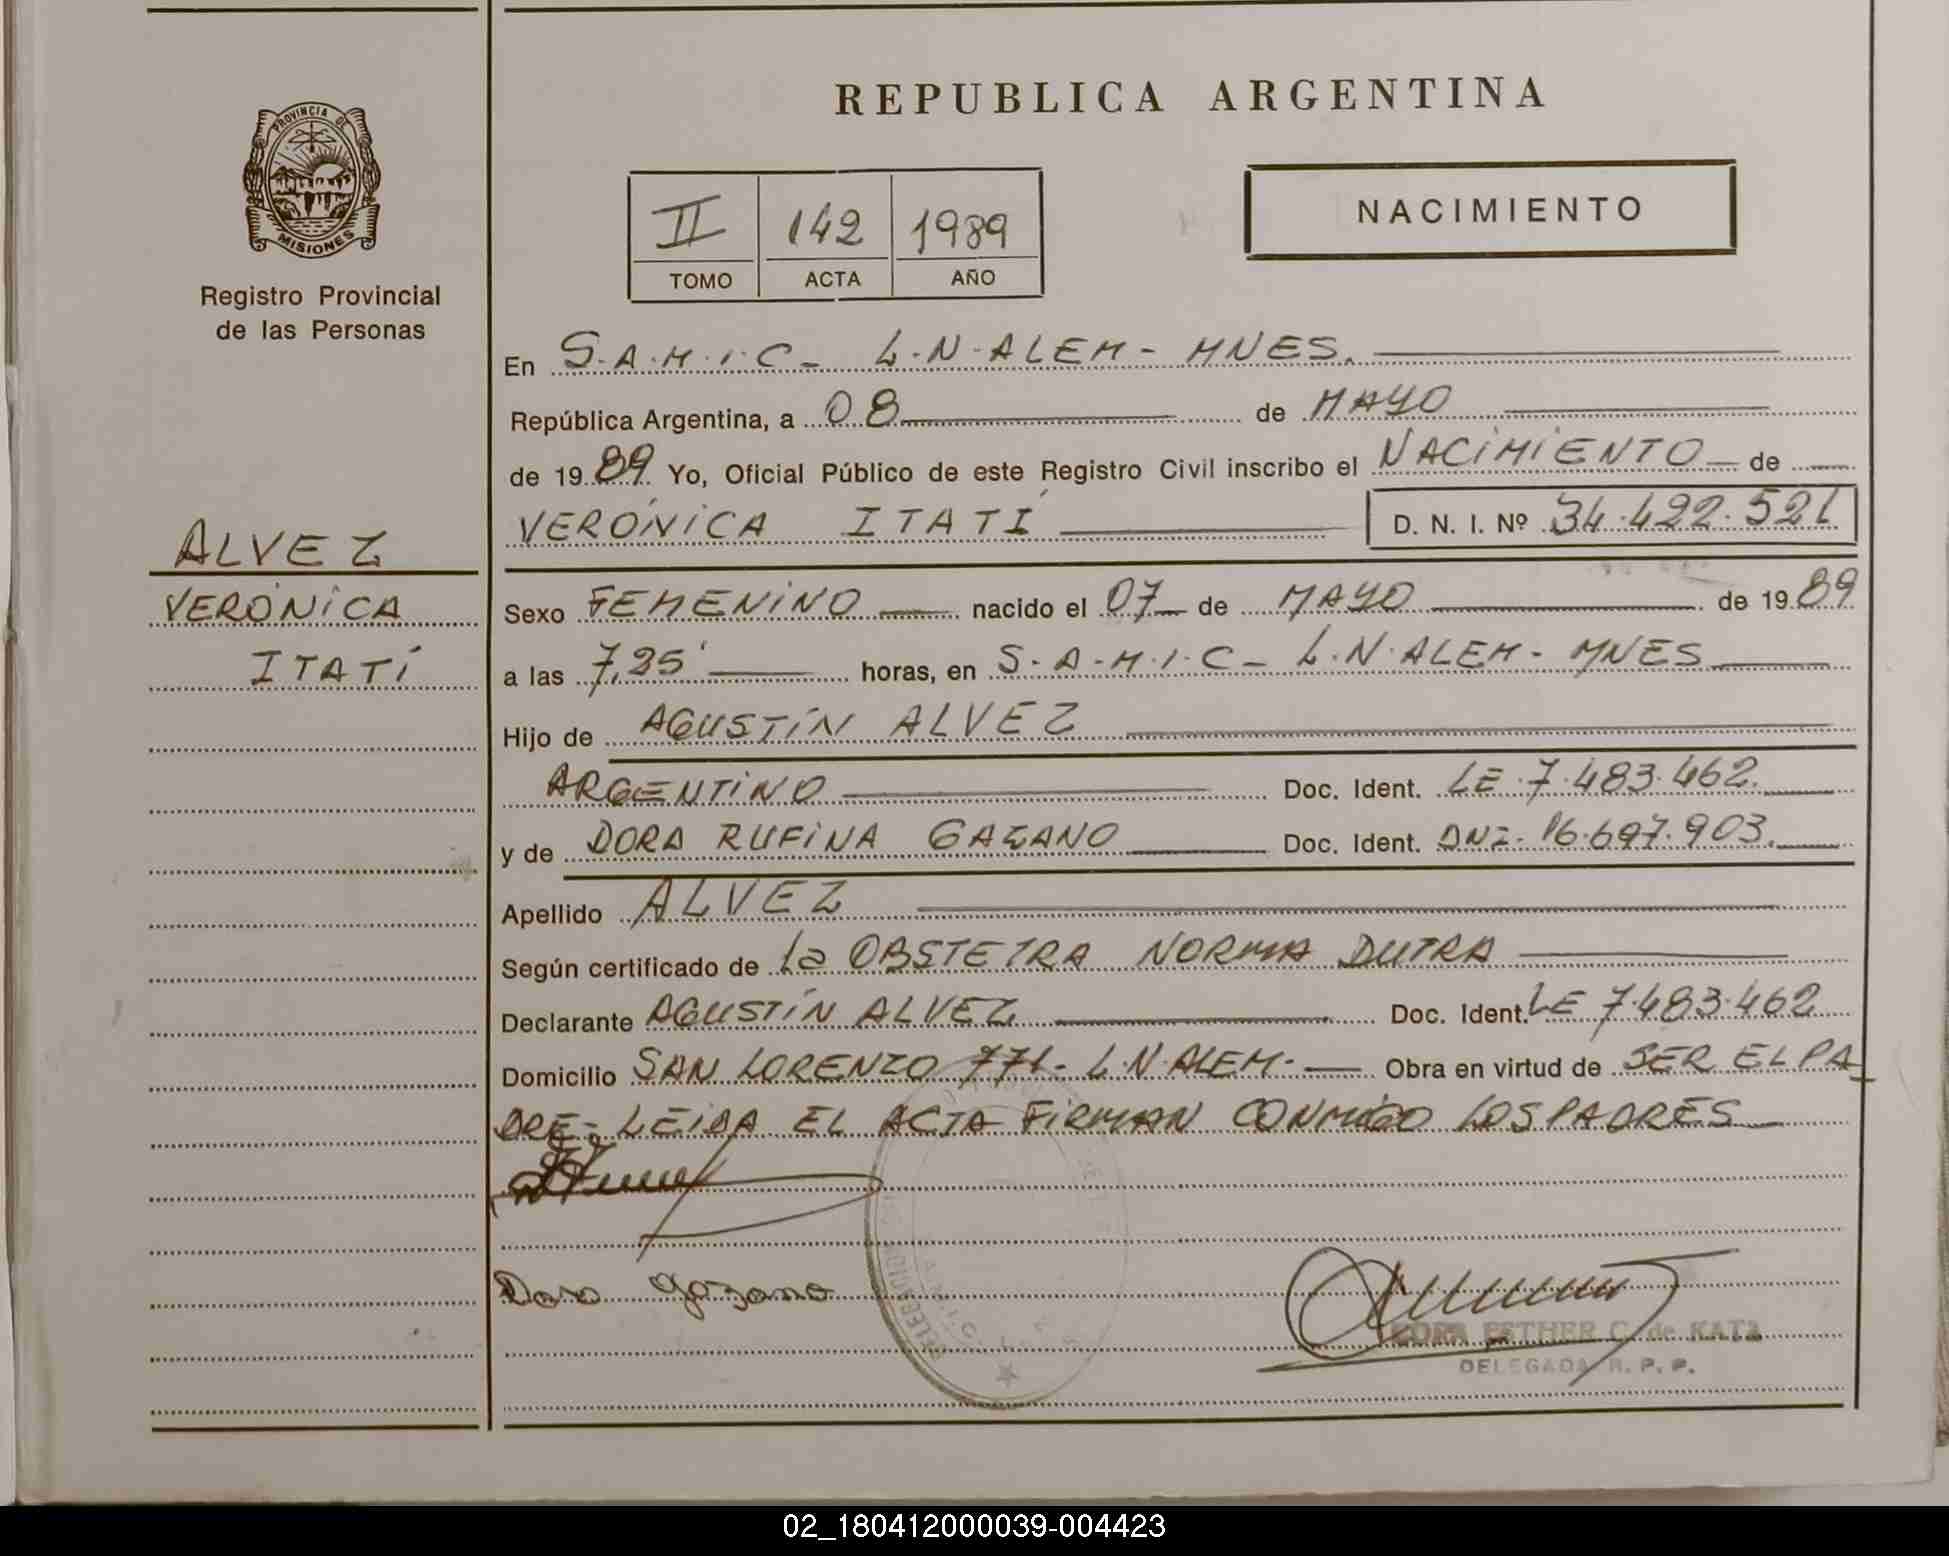 REPUBLICA ARGENTINA
PROVINCIA DE
MISIONES
Registro Provincial
de las Personas
II 142 1989
TOMO ACTA AÑO
NACIMIENTO
En S.A.M.I.C- L.N.ALEM- MNES.
República Argentina, a 08 de MAYO
de 1989 Yo, Oficial Público de este Registro Civil inscribo el NACIMIENTO de
VERÓNICA ITATÍ D. N. I. Nº 34.422.521
ALVEZ
VERÓNICA
ITATÍ
Sexo FEMENINO nacido el 07 de MAYO de 1989
a las 7,25' horas, en S.A.M.I.C- L.N.ALEM- MNES
Hijo de AGUSTÍN ALVEZ
ARGENTINO Doc. Ident. LE.7.483.462.
y de DORA RUFINA GAZANO Doc. Ident. DNI-16.697.903.
Apellido ALVEZ
Según certificado de la OBSTETRA NORMA DUTRA
Declarante AGUSTÍN ALVEZ Doc. Ident. LE 7.483.462
Domicilio SAN LORENZO 771- L.N.ALEM- Obra en virtud de SER EL PA
DRE- LEIDA EL ACTA FIRMAN CONMIGO LOS PADRES
Dora Gazano
ESTHER C. de KATZ
DELEGADA R. P. P.
02_180412000039-004423